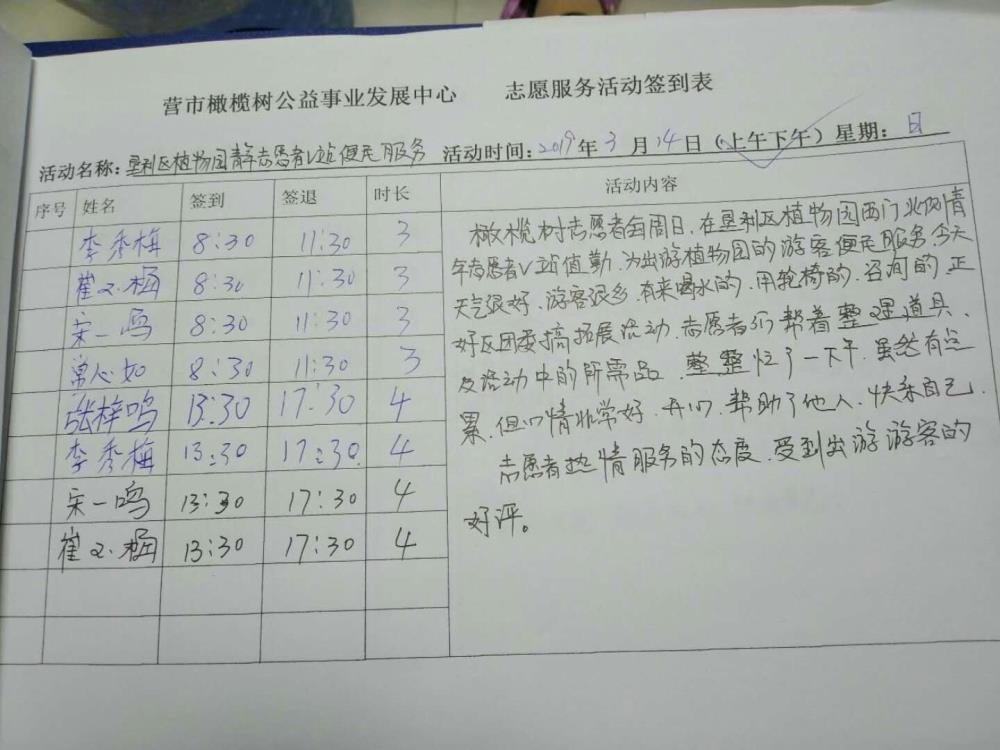 营市橄榄树公益事业发展中心 志愿服务活动签到表
活动名称:垦利区植物园青志愿者V站便民服务 活动时间:2019年3月14日(上午下午)星期:日
序号 姓名 签到 签退 时长 活动内容
李秀梅 8:30 11:30 3
崔文涵 8:30 11:30 3
宋一鸣 8:30 11:30 3
常心如 8:30 11:30 3
张梓鸣 13:30 17:30 4
李秀梅 13:30 17:30 4
宋一鸣 13:30 17:30 4
崔文涵 13:30 17:30 4
橄榄树志愿者每周日,在垦利区植物园西门北侧青
年志愿者V站值勤.为出游植物园的游客便民服务.今天
天气很好.游客很多.有来喝水的.用轮椅的.咨询的.正
好区团委搞拓展活动.志愿者们帮着整理道具、
及活动中的所需品.整整忙了一下午.虽然有点
累.但心情非常好.开心.帮助了他人.快乐自己.
志愿者热情服务的态度.受到出游游客的
好评。